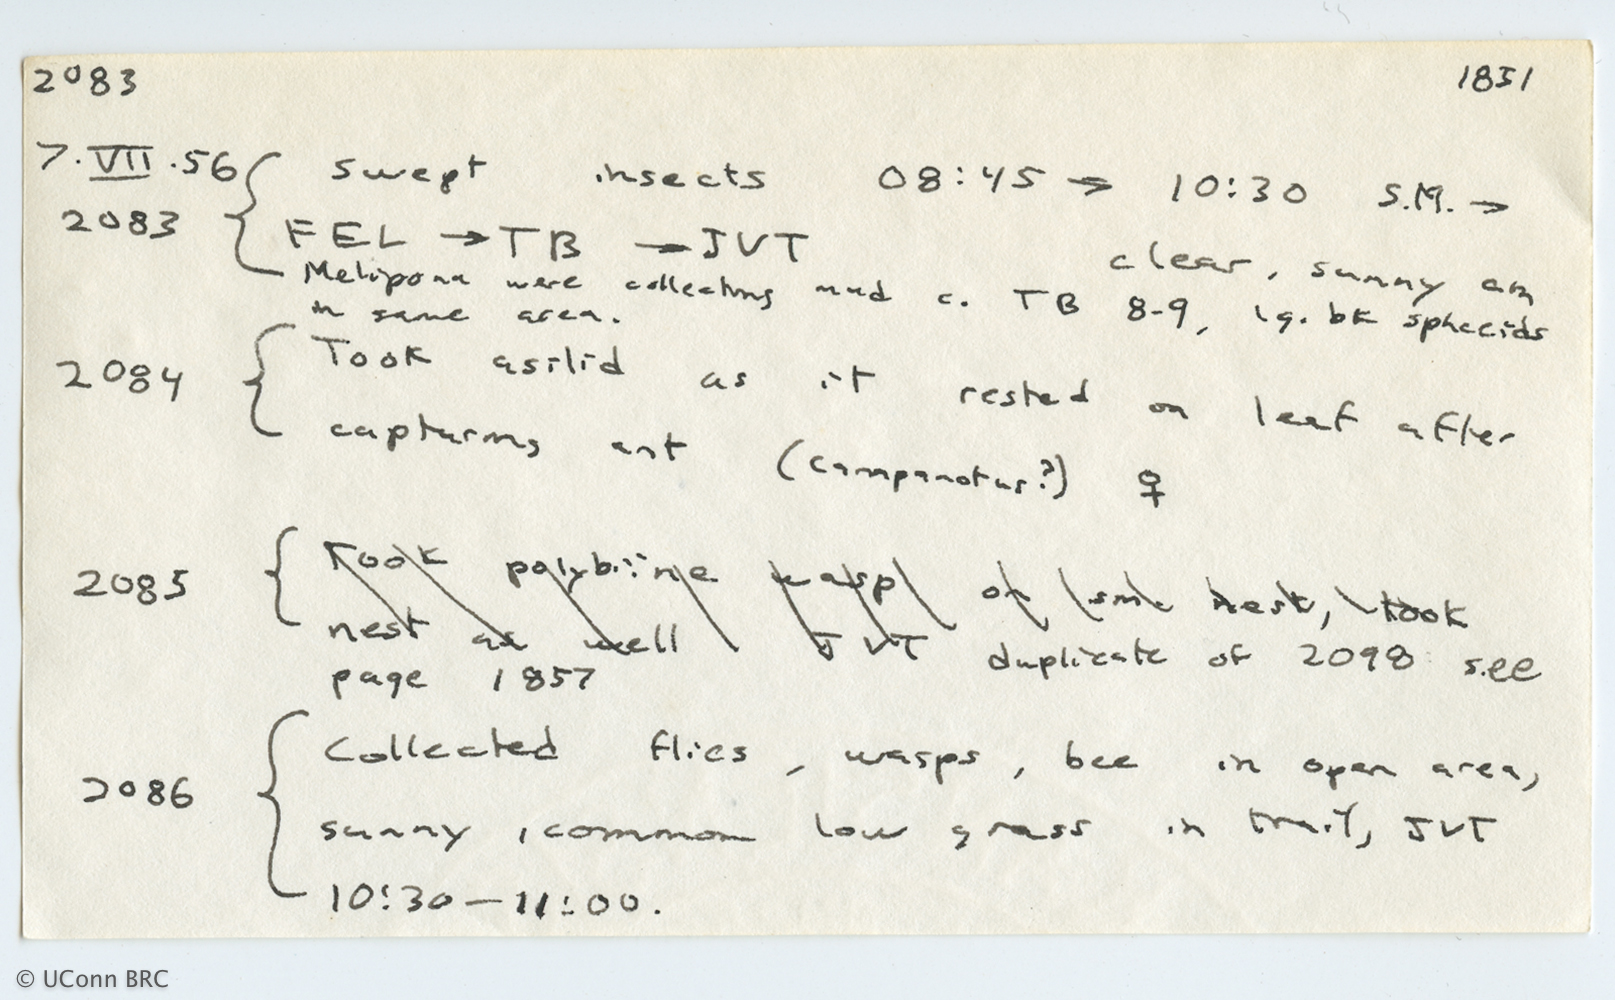 2083 1851
7.VII.56 swept insects 08:45 → 10:30 S.M. →
2083 FEL → TB → JVT clear, sunny am
Melipona were collecting mud c. TB 8-9, lg. bk sphecids
in same area.
2084 Took asilid as it rested on leaf after
capturing ant (Camponotus?) ♀
2085 Took polybiine wasp on sml nest, took
nest as well JVT duplicate of 2098 see
page 1857
2086 Collected flies, wasps, bee in open area,
sunny, common low grass in trail, JVT
10:30 — 11:00.
© UConn BRC